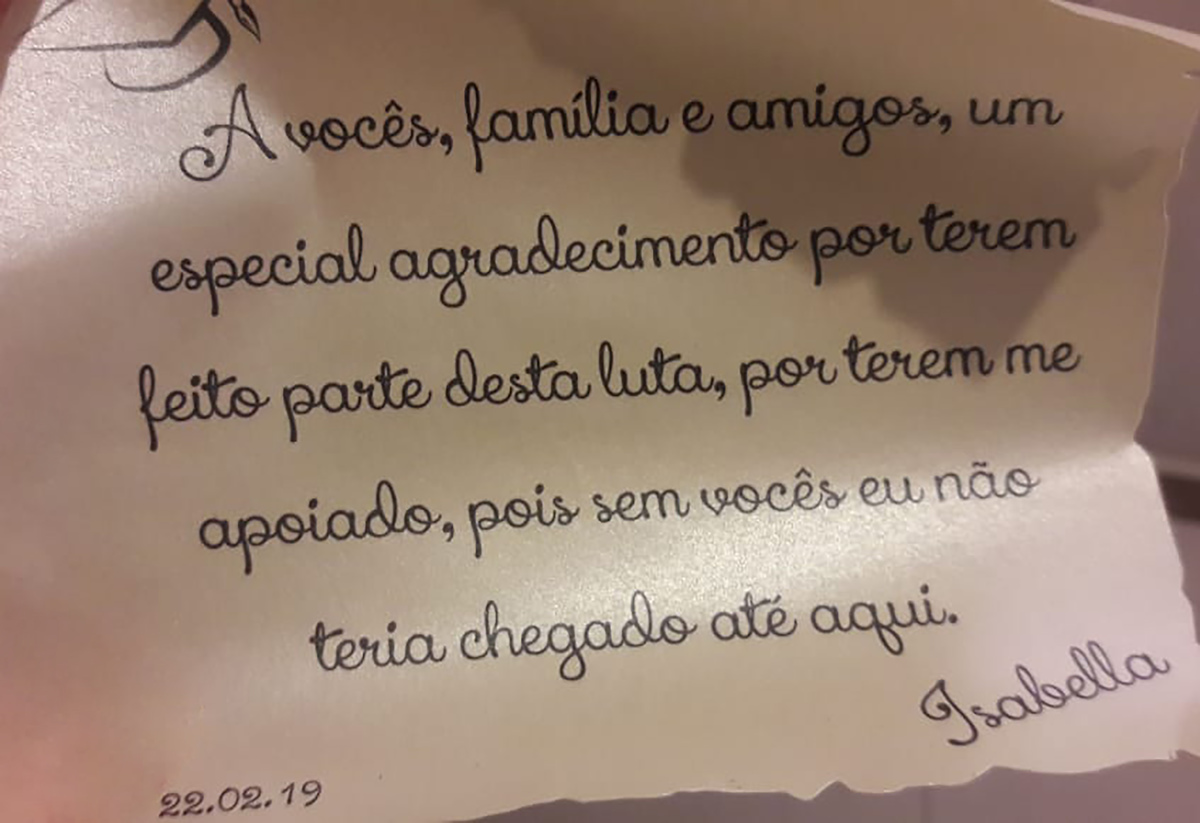 A vocês, família e amigos, um
especial agradecimento por terem
feito parte desta luta, por terem me
apoiado, pois sem vocês eu não
teria chegado até aqui.
Isabella
22.02.19